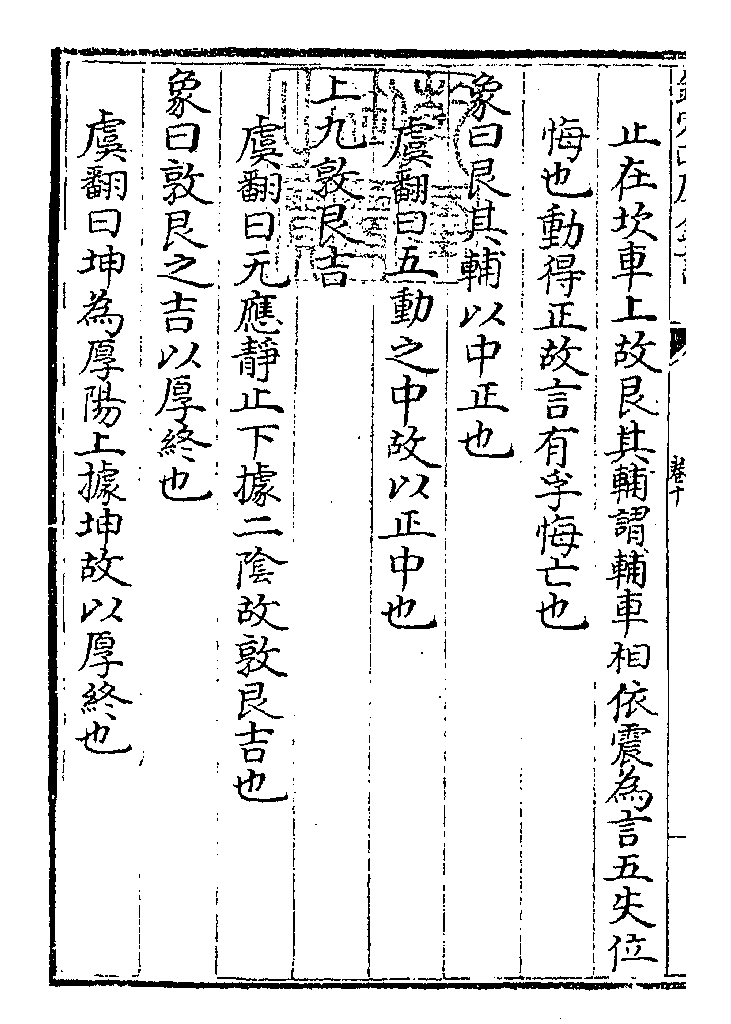 止在坎車上故艮其輔謂輔車相依震為言五失位
悔也動得正故言有孚悔亡也
象曰艮其輔以中正也
虞翻曰五動之中故以正中也
上九敦艮吉
虞翻曰无應靜止下據二陰故敦艮吉也
象曰敦艮之吉以厚終也
虞翻曰坤為厚陽上據坤故以厚終也
卷十